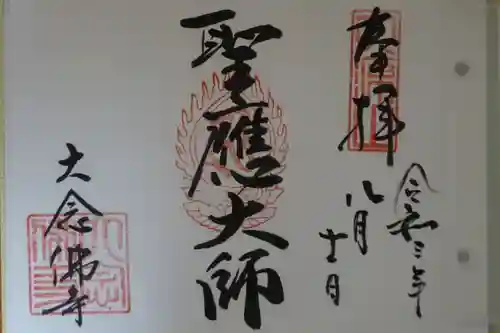 奉拝
令和二年
八月十一日
聖應大師
大念佛寺